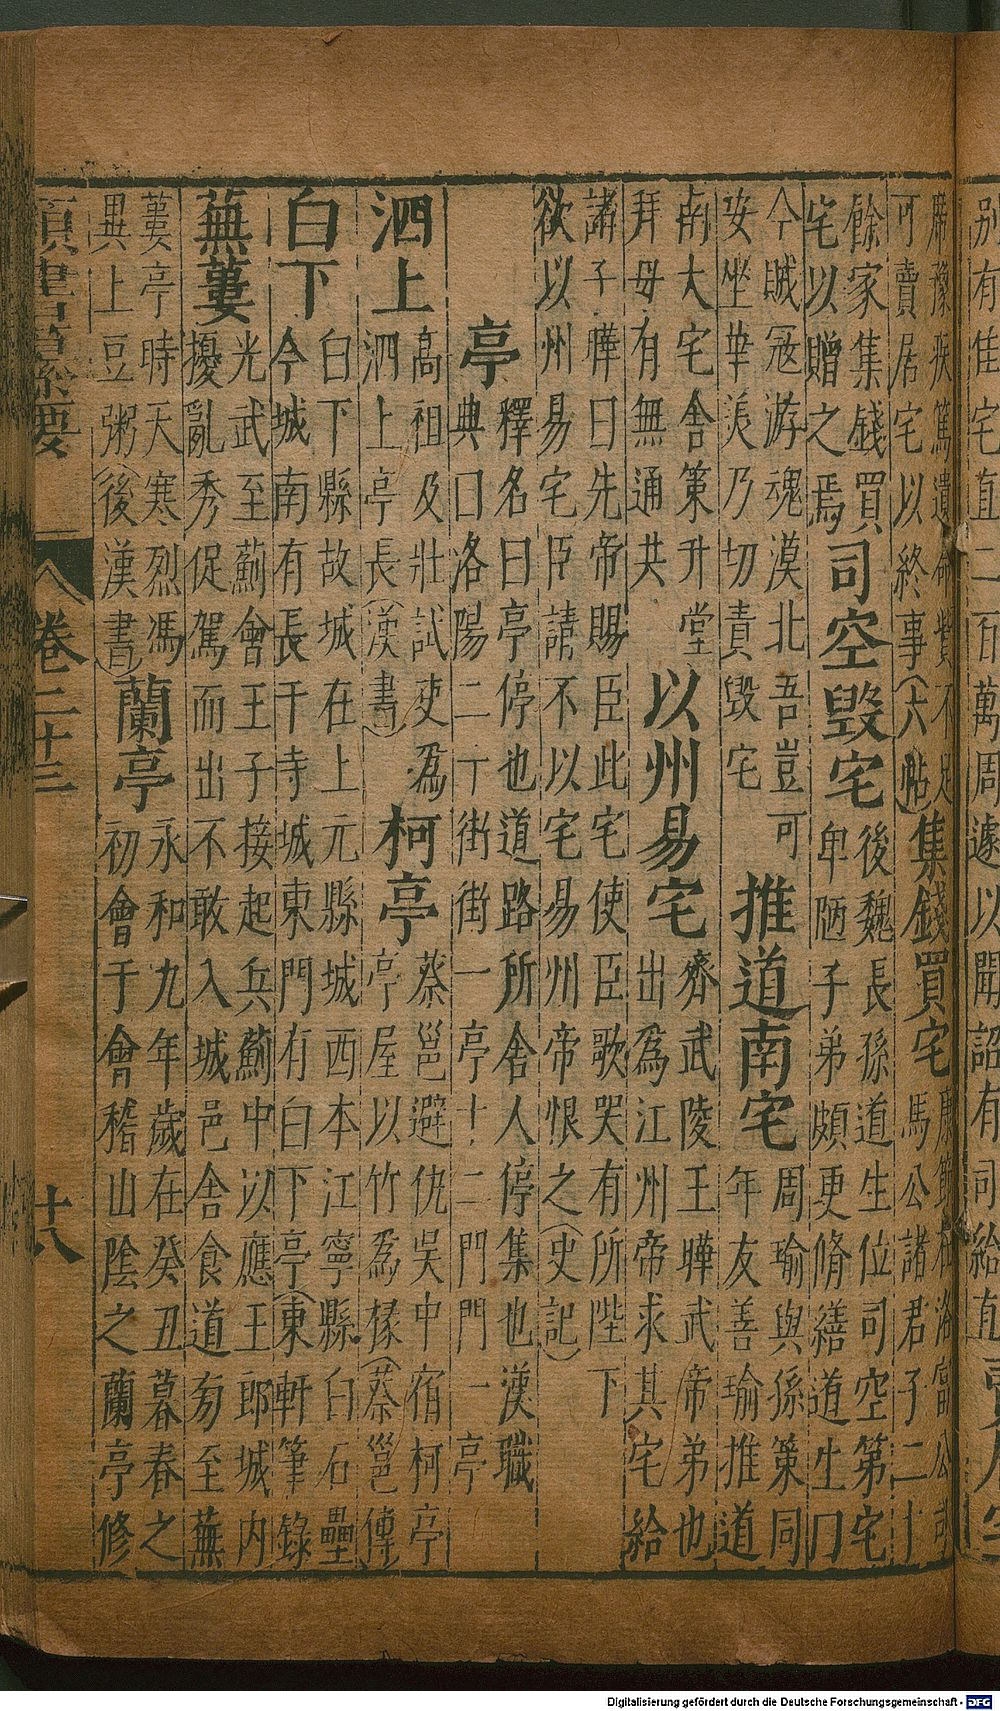 別有隹宅直二百萬周遽以聞詔有司給直
席豫疾篤遺命貲不足
可賣居宅以終事(六帖)
集錢買宅
康節在洛富公司
馬公諸君子二十
餘家集錢買
宅以贈之焉
司空毀宅
後魏長孫道生位司空第宅
卑陋子弟頗更脩繕道生曰
今賊寇游魂漠北吾豈可
安坐華美乃切責毀宅
推道南宅
周瑜與孫策同
年友善瑜推道
南大宅舍策升堂
拜母有無通共
以州易宅
齊武陵王曄武帝弟也
出為江州帝求其宅給
諸子曄曰先帝賜臣此宅使臣歌哭有所陛下
欲以州易宅臣請不以宅易州帝恨之(史記)
亭
釋名曰亭停也道路所舍人停集也漢職
典曰洛陽二十街街一亭十二門門一亭
泗上
高祖及壯試吏為
泗上亭長(漢書)
柯亭
蔡邕避仇吳中宿柯亭
亭屋以竹為椽(蔡邕傳
白下
白下縣故城在上元縣城西本江寧縣白石壘
今城南有長干寺城東門有白下亭(東軒筆錄
蕪蔞
光武至薊會王子接起兵薊中以應王郎城內
擾亂秀促駕而出不敢入城邑舍食道旁至蕪
蔞亭時天寒烈馮
異上豆粥(後漢書)
蘭亭
永和九年歲在癸丑暮春之
初會于會稽山陰之蘭亭修
類書纂要 卷二十三 十八
Digitalisierung gefördert durch die Deutsche Forschungsgemeinschaft - DFG